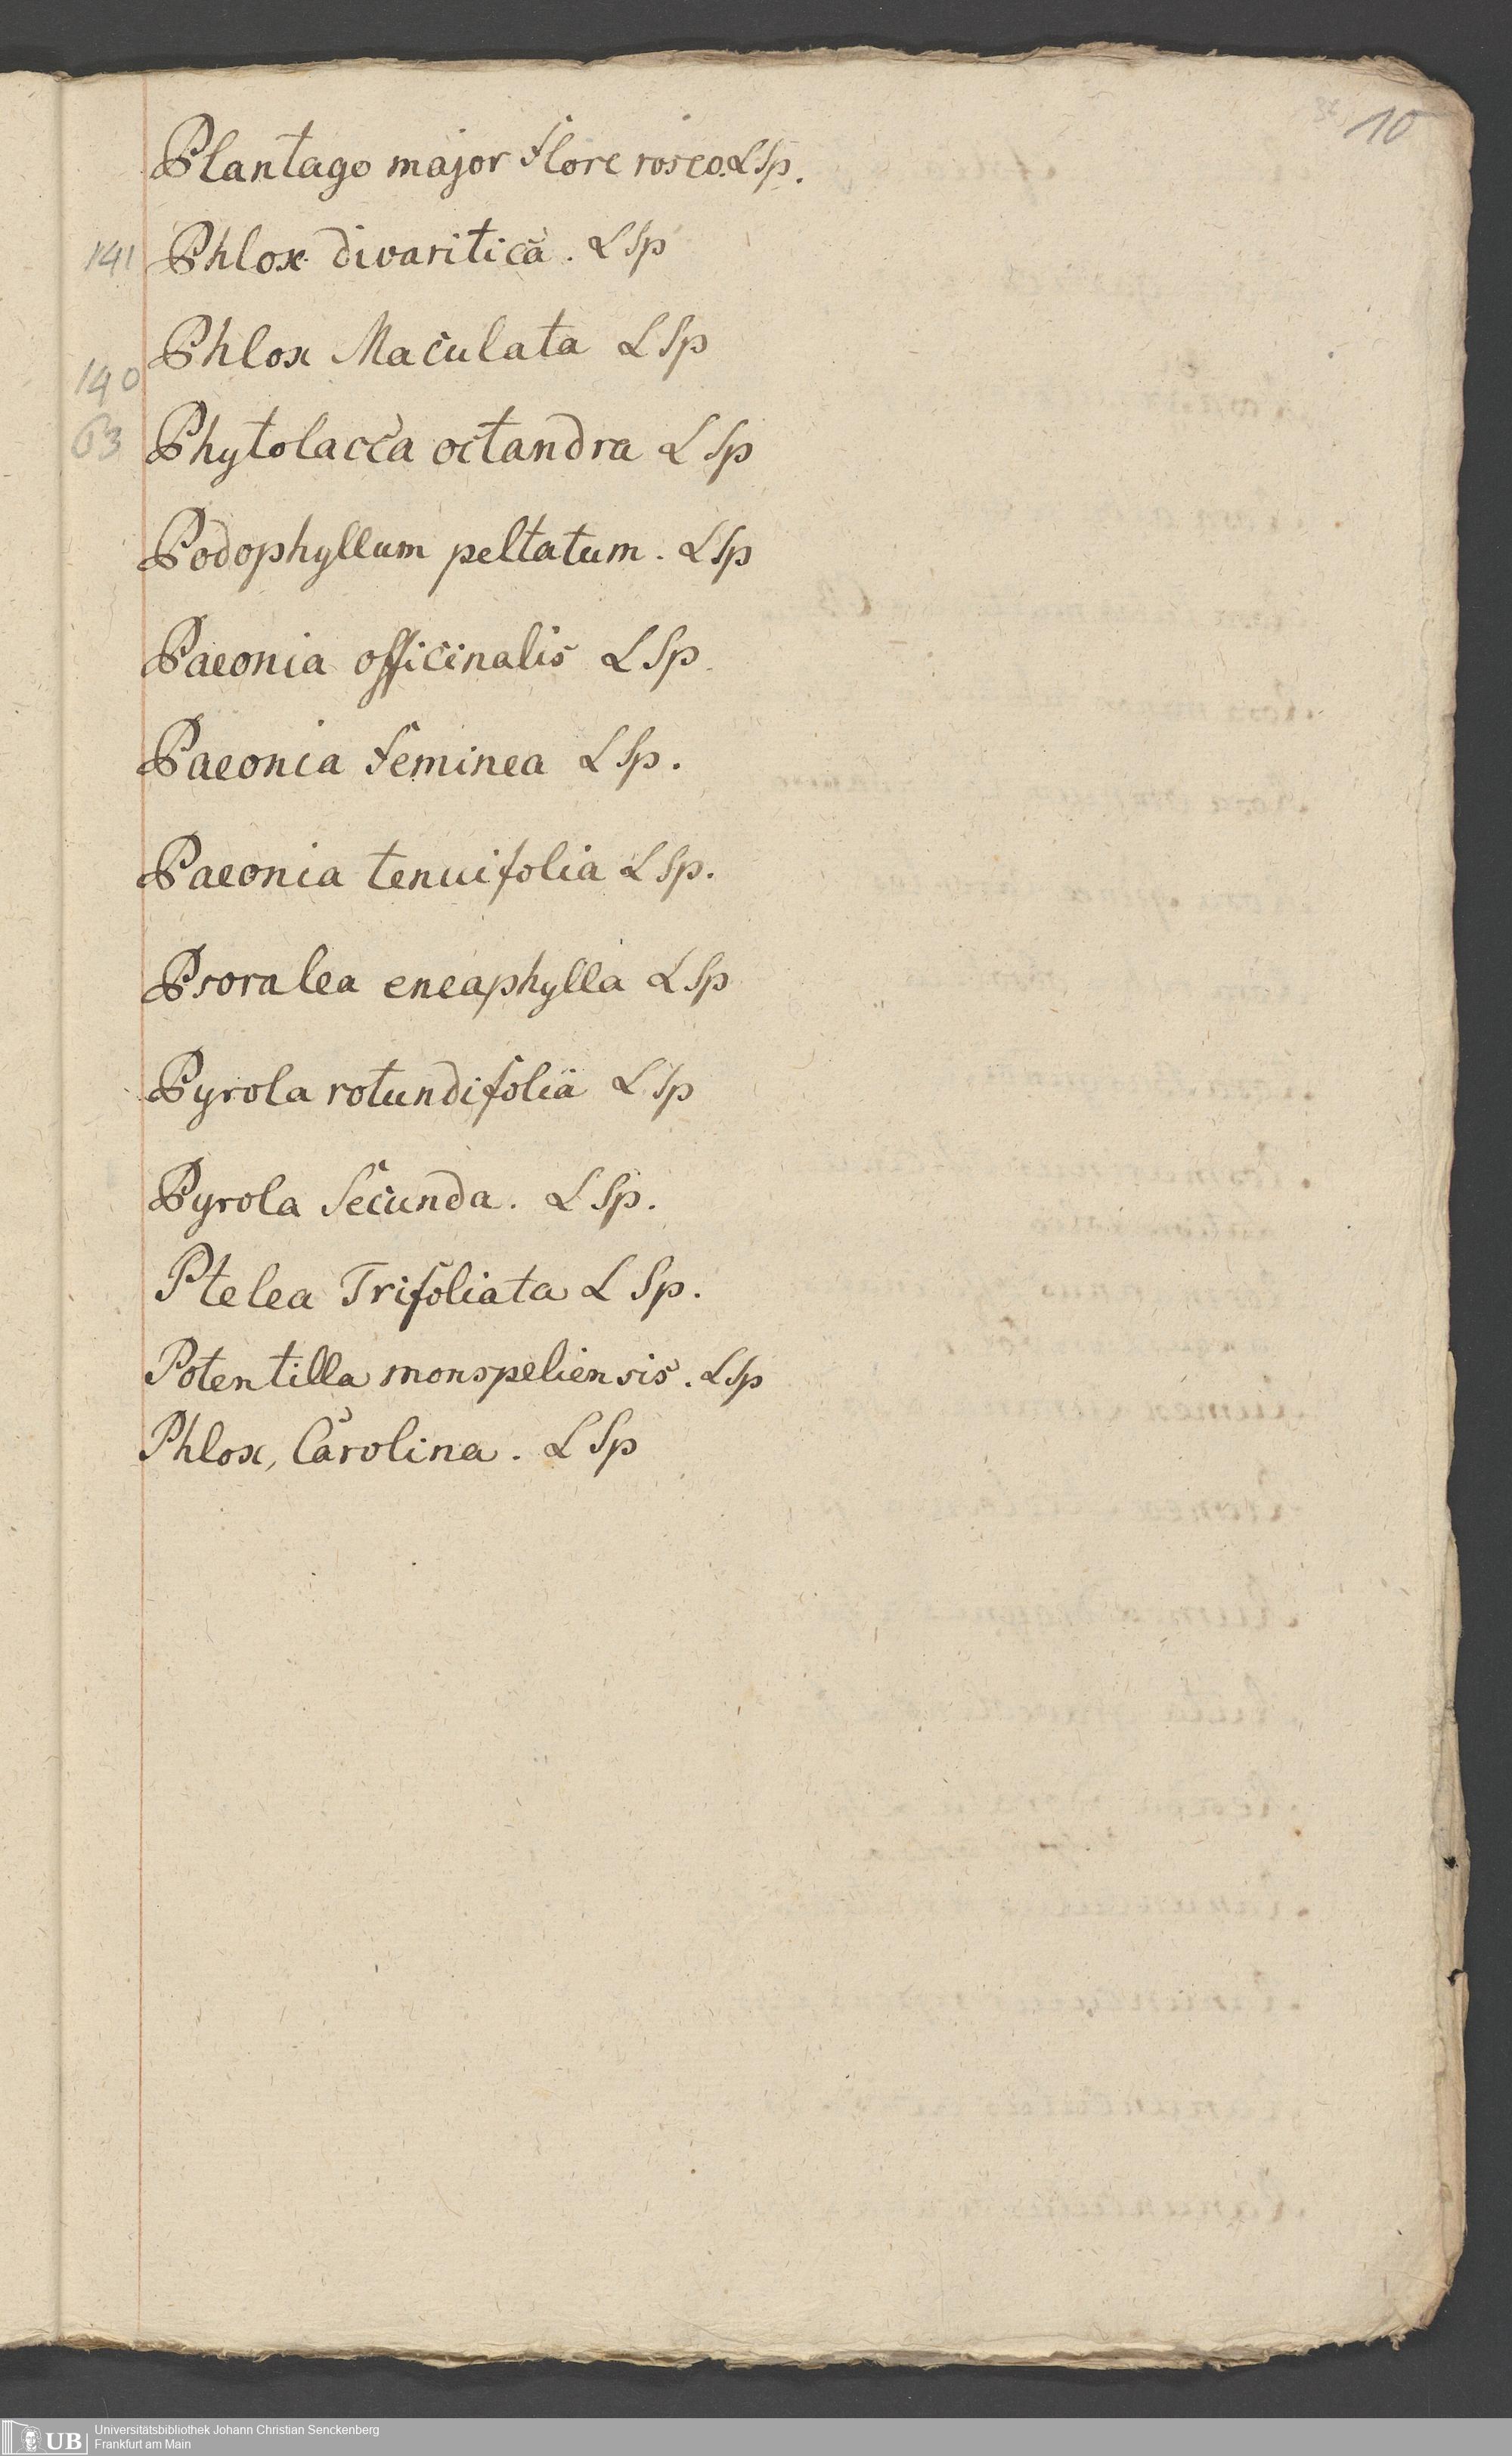 10
Plantago major flore roseo. L Sp.
141 Phlox divaritica. L Sp
Phlox Maculata L Sp
140
63 Phytolacca octandra L Sp
Podophyllum peltatum. L Sp
Paeonia officinalis L Sp.
Paeonia feminea L Sp.
Paeonia tenuifolia L Sp.
Psoralea eneaphylla L Sp
Pyrola rotundifolia L Sp
Pyrola Secunda. L Sp.
Ptelea Trifoliata L Sp.
Potentilla monspeliensis. L Sp
Phlox, Carolina. L Sp
UB Universitätsbibliothek Johann Christian Senckenberg
Frankfurt am Main